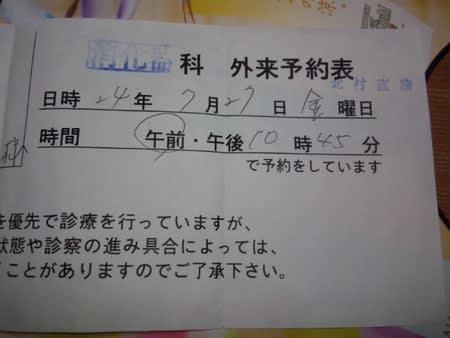 消化器 科 外来予約表
日時 24年 7月27日 金曜日
時間 午前・午後10時45分
様
で予約をしています
を優先で診療を行っていますが、
状態や診察の進み具合によっては、
ことがありますのでご了承下さい。